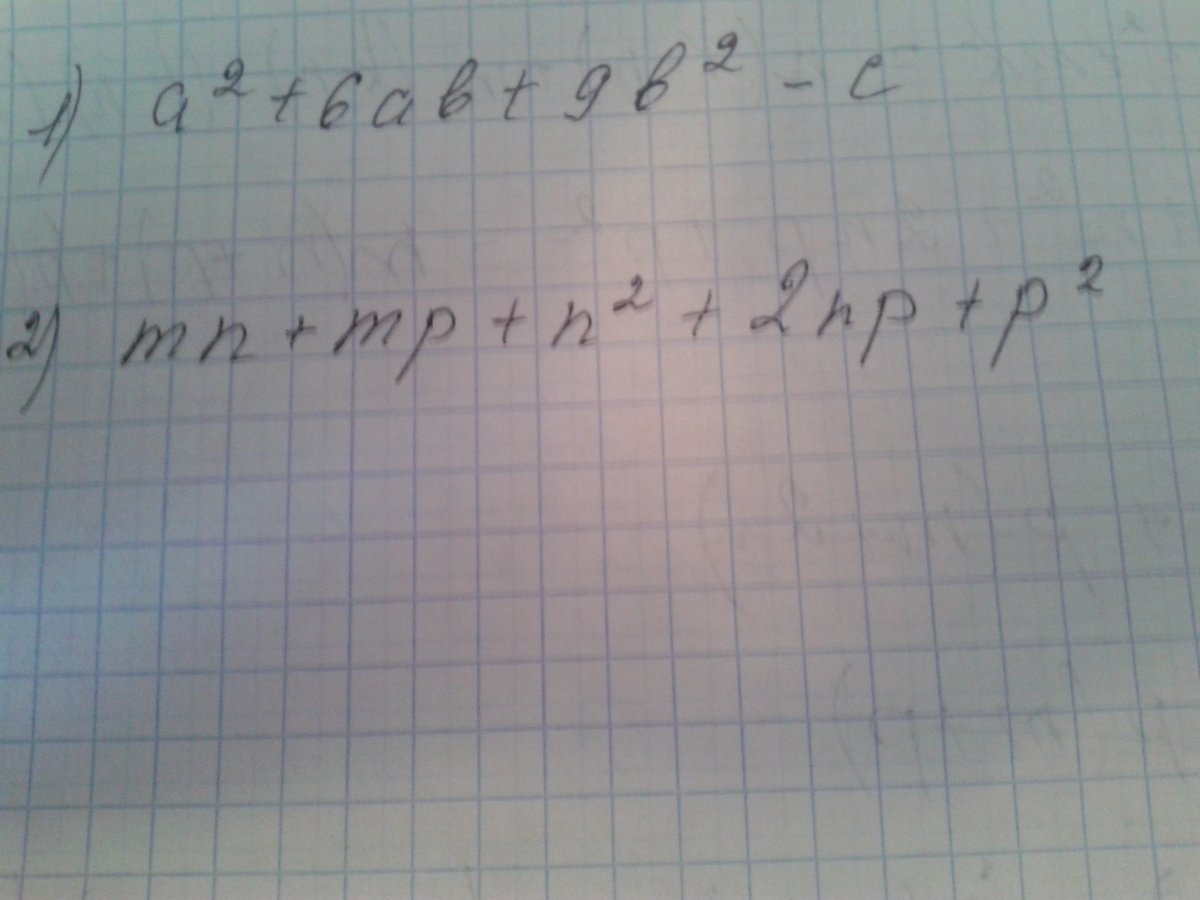 1) a² + 6ab + 9b² - c
2) mn + mp + n² + 2np + p²